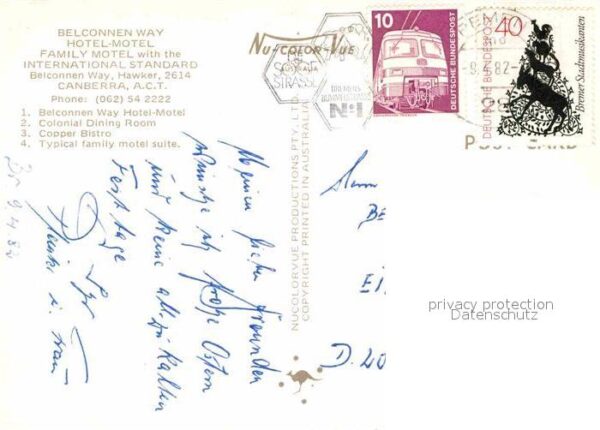 BELCONNEN WAY
HOTEL-MOTEL
FAMILY MOTEL with the
INTERNATIONAL STANDARD
Belconnen Way, Hawker, 2614
CANBERRA, A.C.T.
Phone: (062) 54 2222
1. Belconnen Way Hotel-Motel
2. Colonial Dining Room
3. Copper Bistro
4. Typical family motel suite.
NU-COLOR-VUE
AUSTRALIA
NUCOLORVUE PRODUCTIONS PTY. LTD.
COPYRIGHT PRINTED IN AUSTRALIA
POST CARD
10
DEUTSCHE BUNDESPOST
40
DEUTSCHE BUNDESPOST
Bremer Stadtmusikanten
STRASSE
BREMENS
№1
82
Br 9.4.82
Meinen lieben Freunden
wünsche ich frohe Ostern
und keine allzu kalten
Festtage
u. Frau
D. 20
privacy protection
Datenschutz